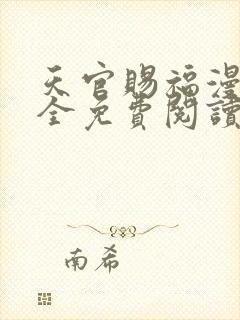 天官賜福漫
全免費閱讀
南希